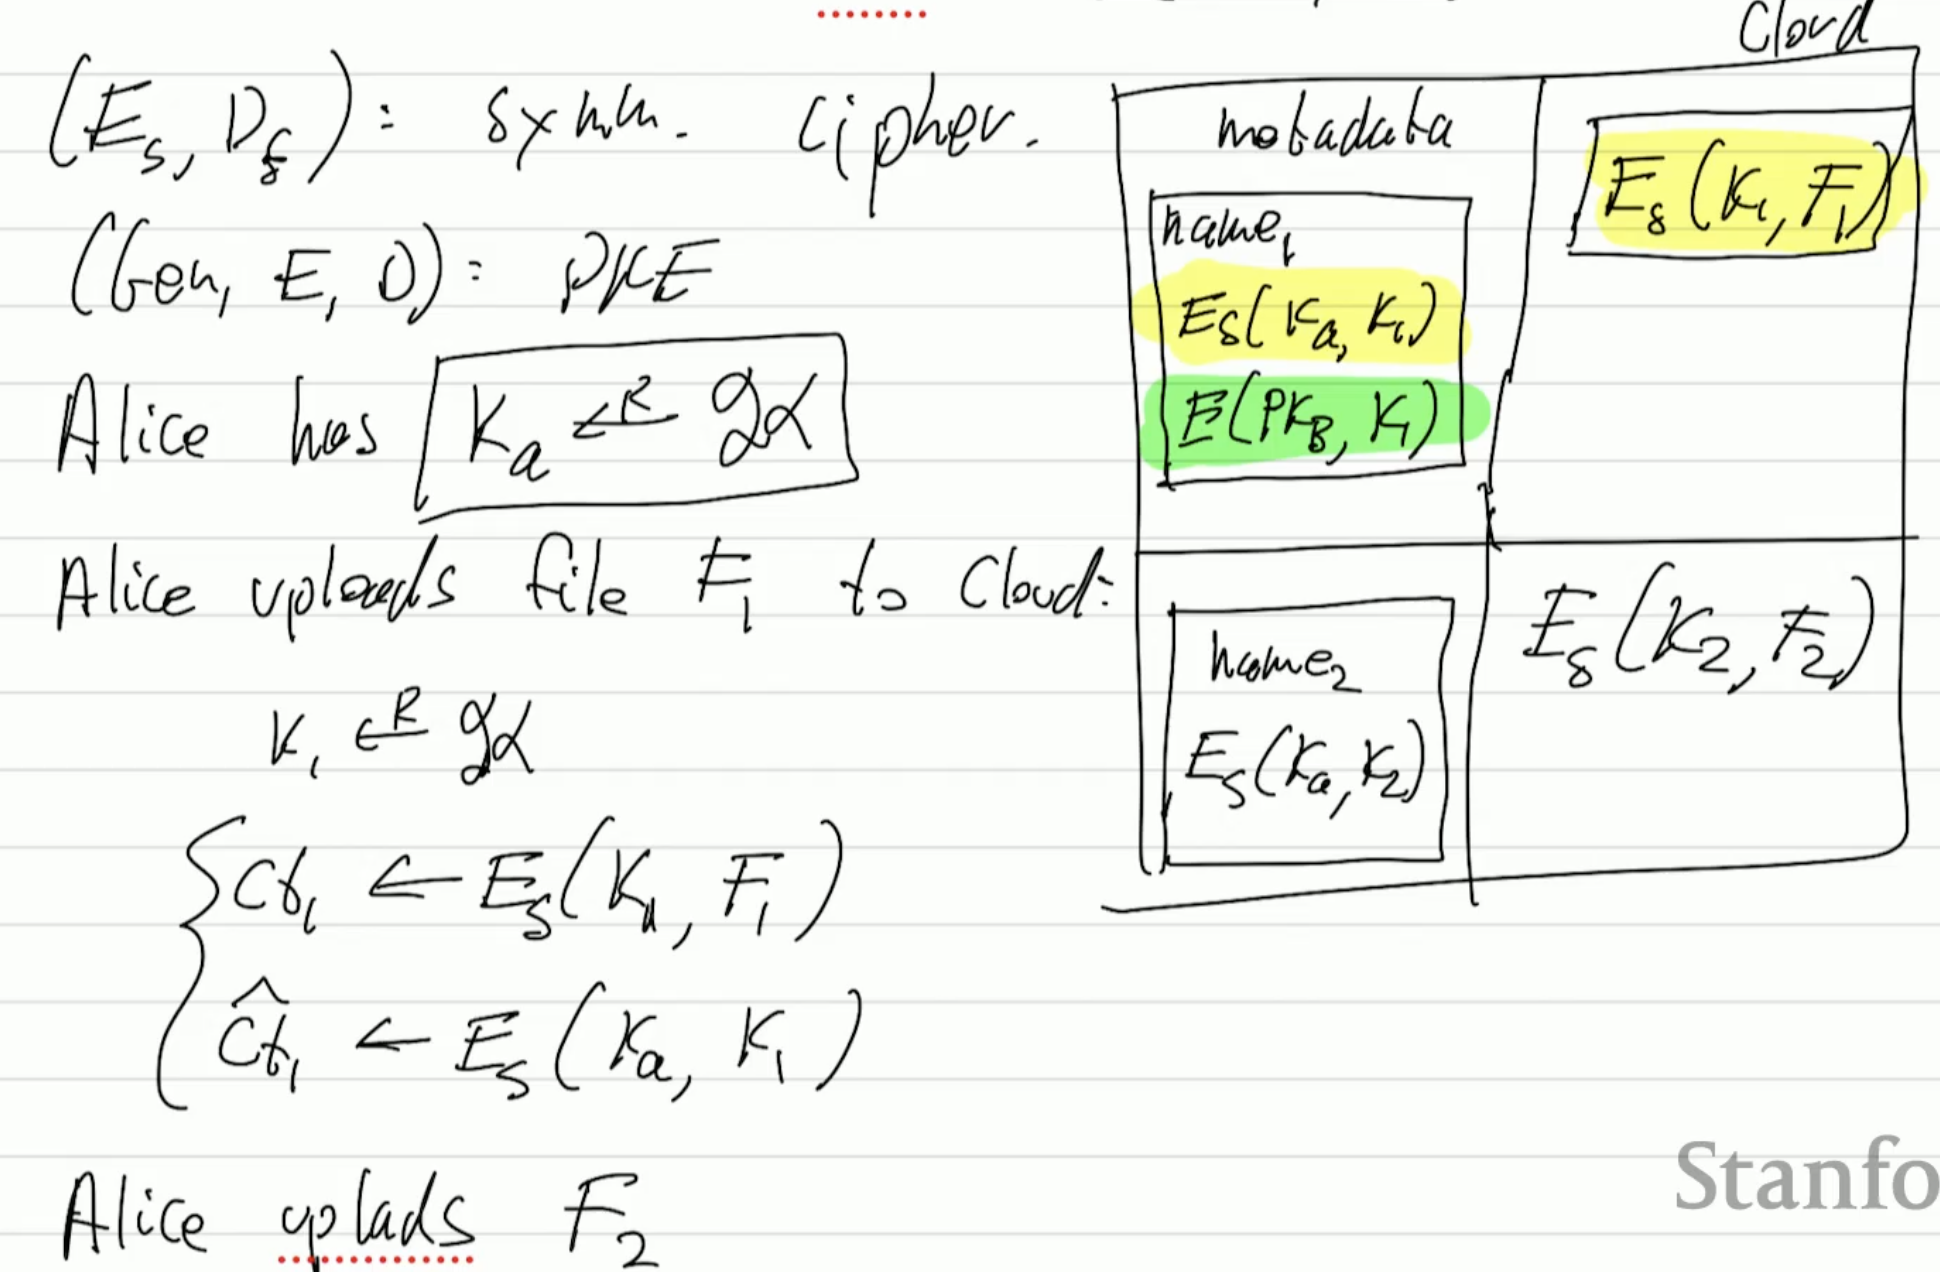 (E_s, D_s): symm. cipher.
(Gen, E, D): PKE
Alice has K_a ←R 𝒦
Alice uploads file F_1 to Cloud:
K_1 ←R 𝒦
Ct_1 ← E_s(K_1, F_1)
Ĉt_1 ← E_s(K_a, K_1)
Alice uplads F_2
Cloud
metadata
name_1
E_s(K_a, K_1)
E(PK_B, K_1)
E_s(K_1, F_1)
name_2
E_s(K_a, K_2)
E_s(K_2, F_2)
Stanfo